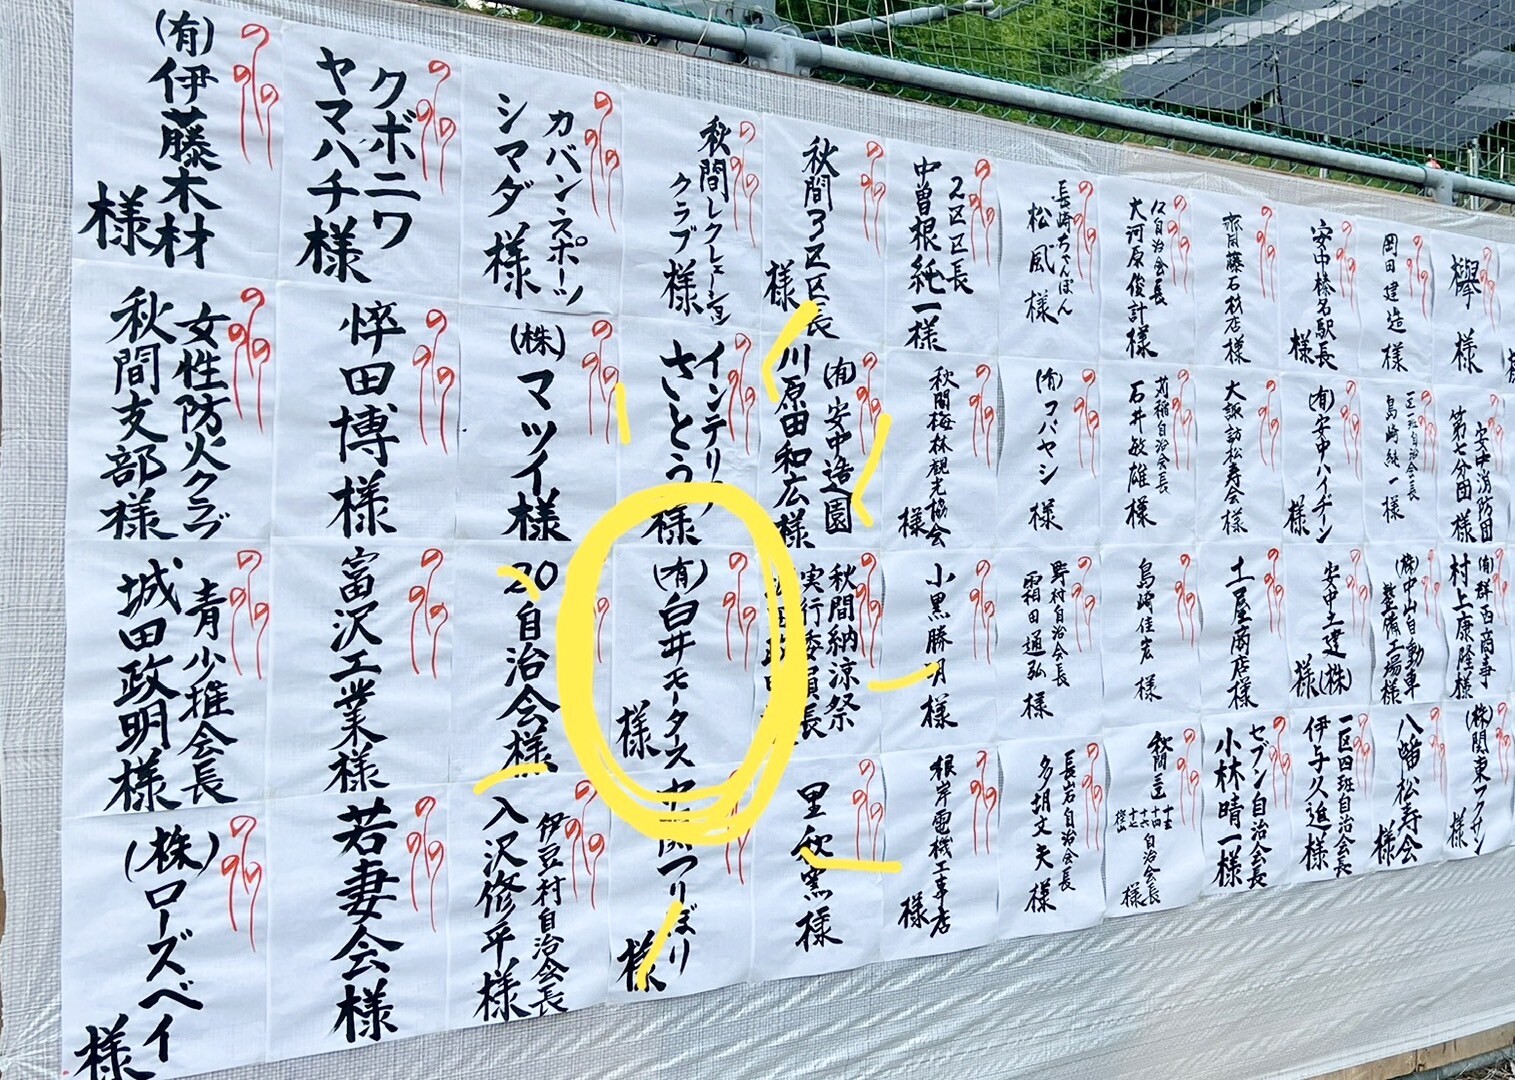 欅
様
岡田建造
様
安中榛名駅長
様
齋藤石材店
様
12自治会長
大河原俊計様
長崎ちゃんぽん
松風様
2区区長
中曽根純一様
秋間3区区長
様
秋間レクレーション
クラブ様
カバンスポーツ
シマダ様
クボニワ
ヤマハチ様
(有)伊藤木材
様
安中消防団
第七分団様
島崎純一様
(有)安中ハイヂーン
様
大諏訪松寿会
様
苅稲自治会長
石井敏雄様
(有)コバヤシ
様
秋間梅林観光協会
様
(有)安中造園
川原田和広様
インテリア
さとう様
(株)マツイ様
田博様
女性防火クラブ
秋間支部様
(有)群西商事
村上康隆様
(株)中山自動車
整備工場様
安中土建(株)
様
土屋商店様
島崎佳宏
様
野村自治会長
霜田通弘様
小黒勝明様
秋間納涼祭
実行委員長
(有)白井モータース
様
20自治会様
富沢工業様
青少推会長
城田政明様
(株)関東フクサン
様
八幡松寿会
様
一区四班自治会長
伊与久進様
セブン自治会長
小林晴一様
自治会長
様
長岩自治会長
多胡文夫様
根岸電機工事店
様
里秋窯様
つりぼり
様
伊豆村自治会長
入沢修平様
若妻会様
(株)ローズベイ
様